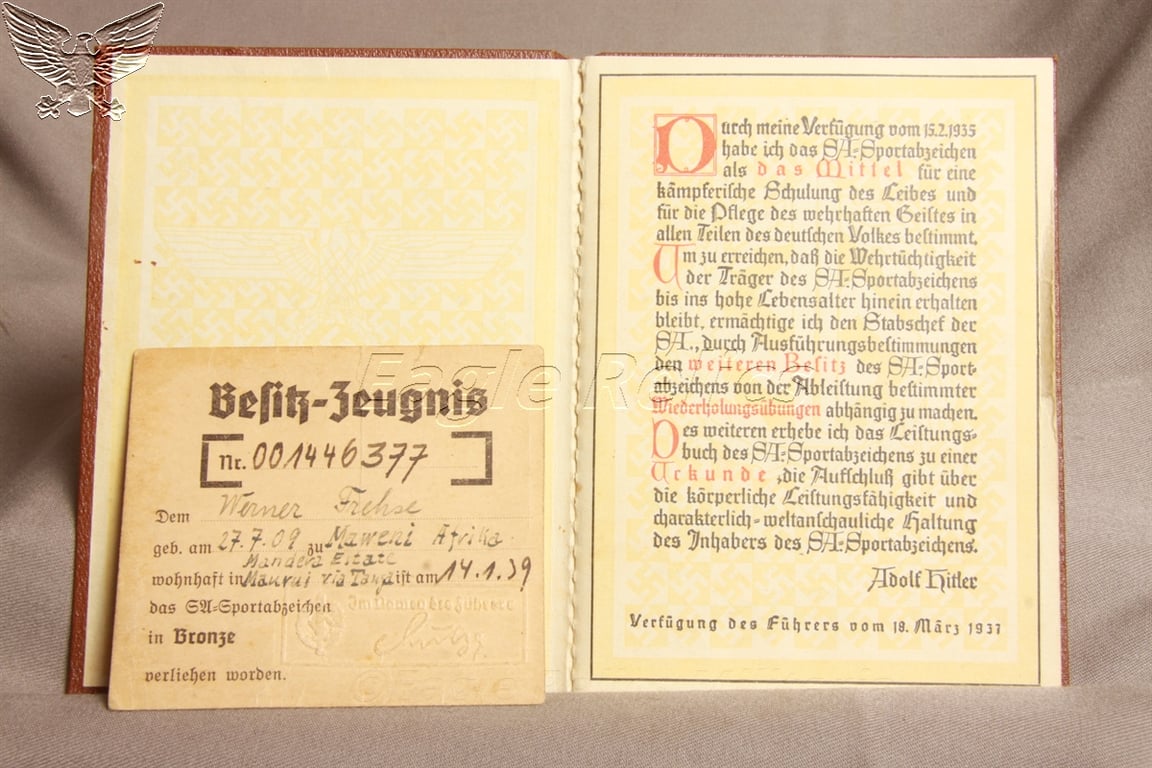 Besitz-Zeugnis
Nr. 001446377
Dem Werner Frehse
geb. am 27.7.09 zu Maweni Afrika
Mandera Estate
wohnhaft in Maurui via Tanga ist am 14.1.39
das SA-Sportabzeichen
in Bronze
verliehen worden.
Im Namen des Führers
Durch meine Verfügung vom 15.2.1935
habe ich das SA.-Sportabzeichen
als das Mittel für eine
kämpferische Schulung des Leibes und
für die Pflege des wehrhaften Geistes in
allen Teilen des deutschen Volkes bestimmt.
Um zu erreichen, daß die Wehrtüchtigkeit
der Träger des SA-Sportabzeichens
bis ins hohe Lebensalter hinein erhalten
bleibt, ermächtige ich den Stabschef der
SA., durch Ausführungsbestimmungen
den weiteren Besitz des SA-Sport-
abzeichens von der Ableistung bestimmter
Wiederholungsübungen abhängig zu machen.
Des weiteren erhebe ich das Leistungs-
buch des SA-Sportabzeichens zu einer
Urkunde, die Aufschluß gibt über
die körperliche Leistungsfähigkeit und
charakterlich-weltanschauliche Haltung
des Inhabers des SA-Sportabzeichens.
Adolf Hitler
Verfügung des Führers vom 18. März 1937
Eagle Relics